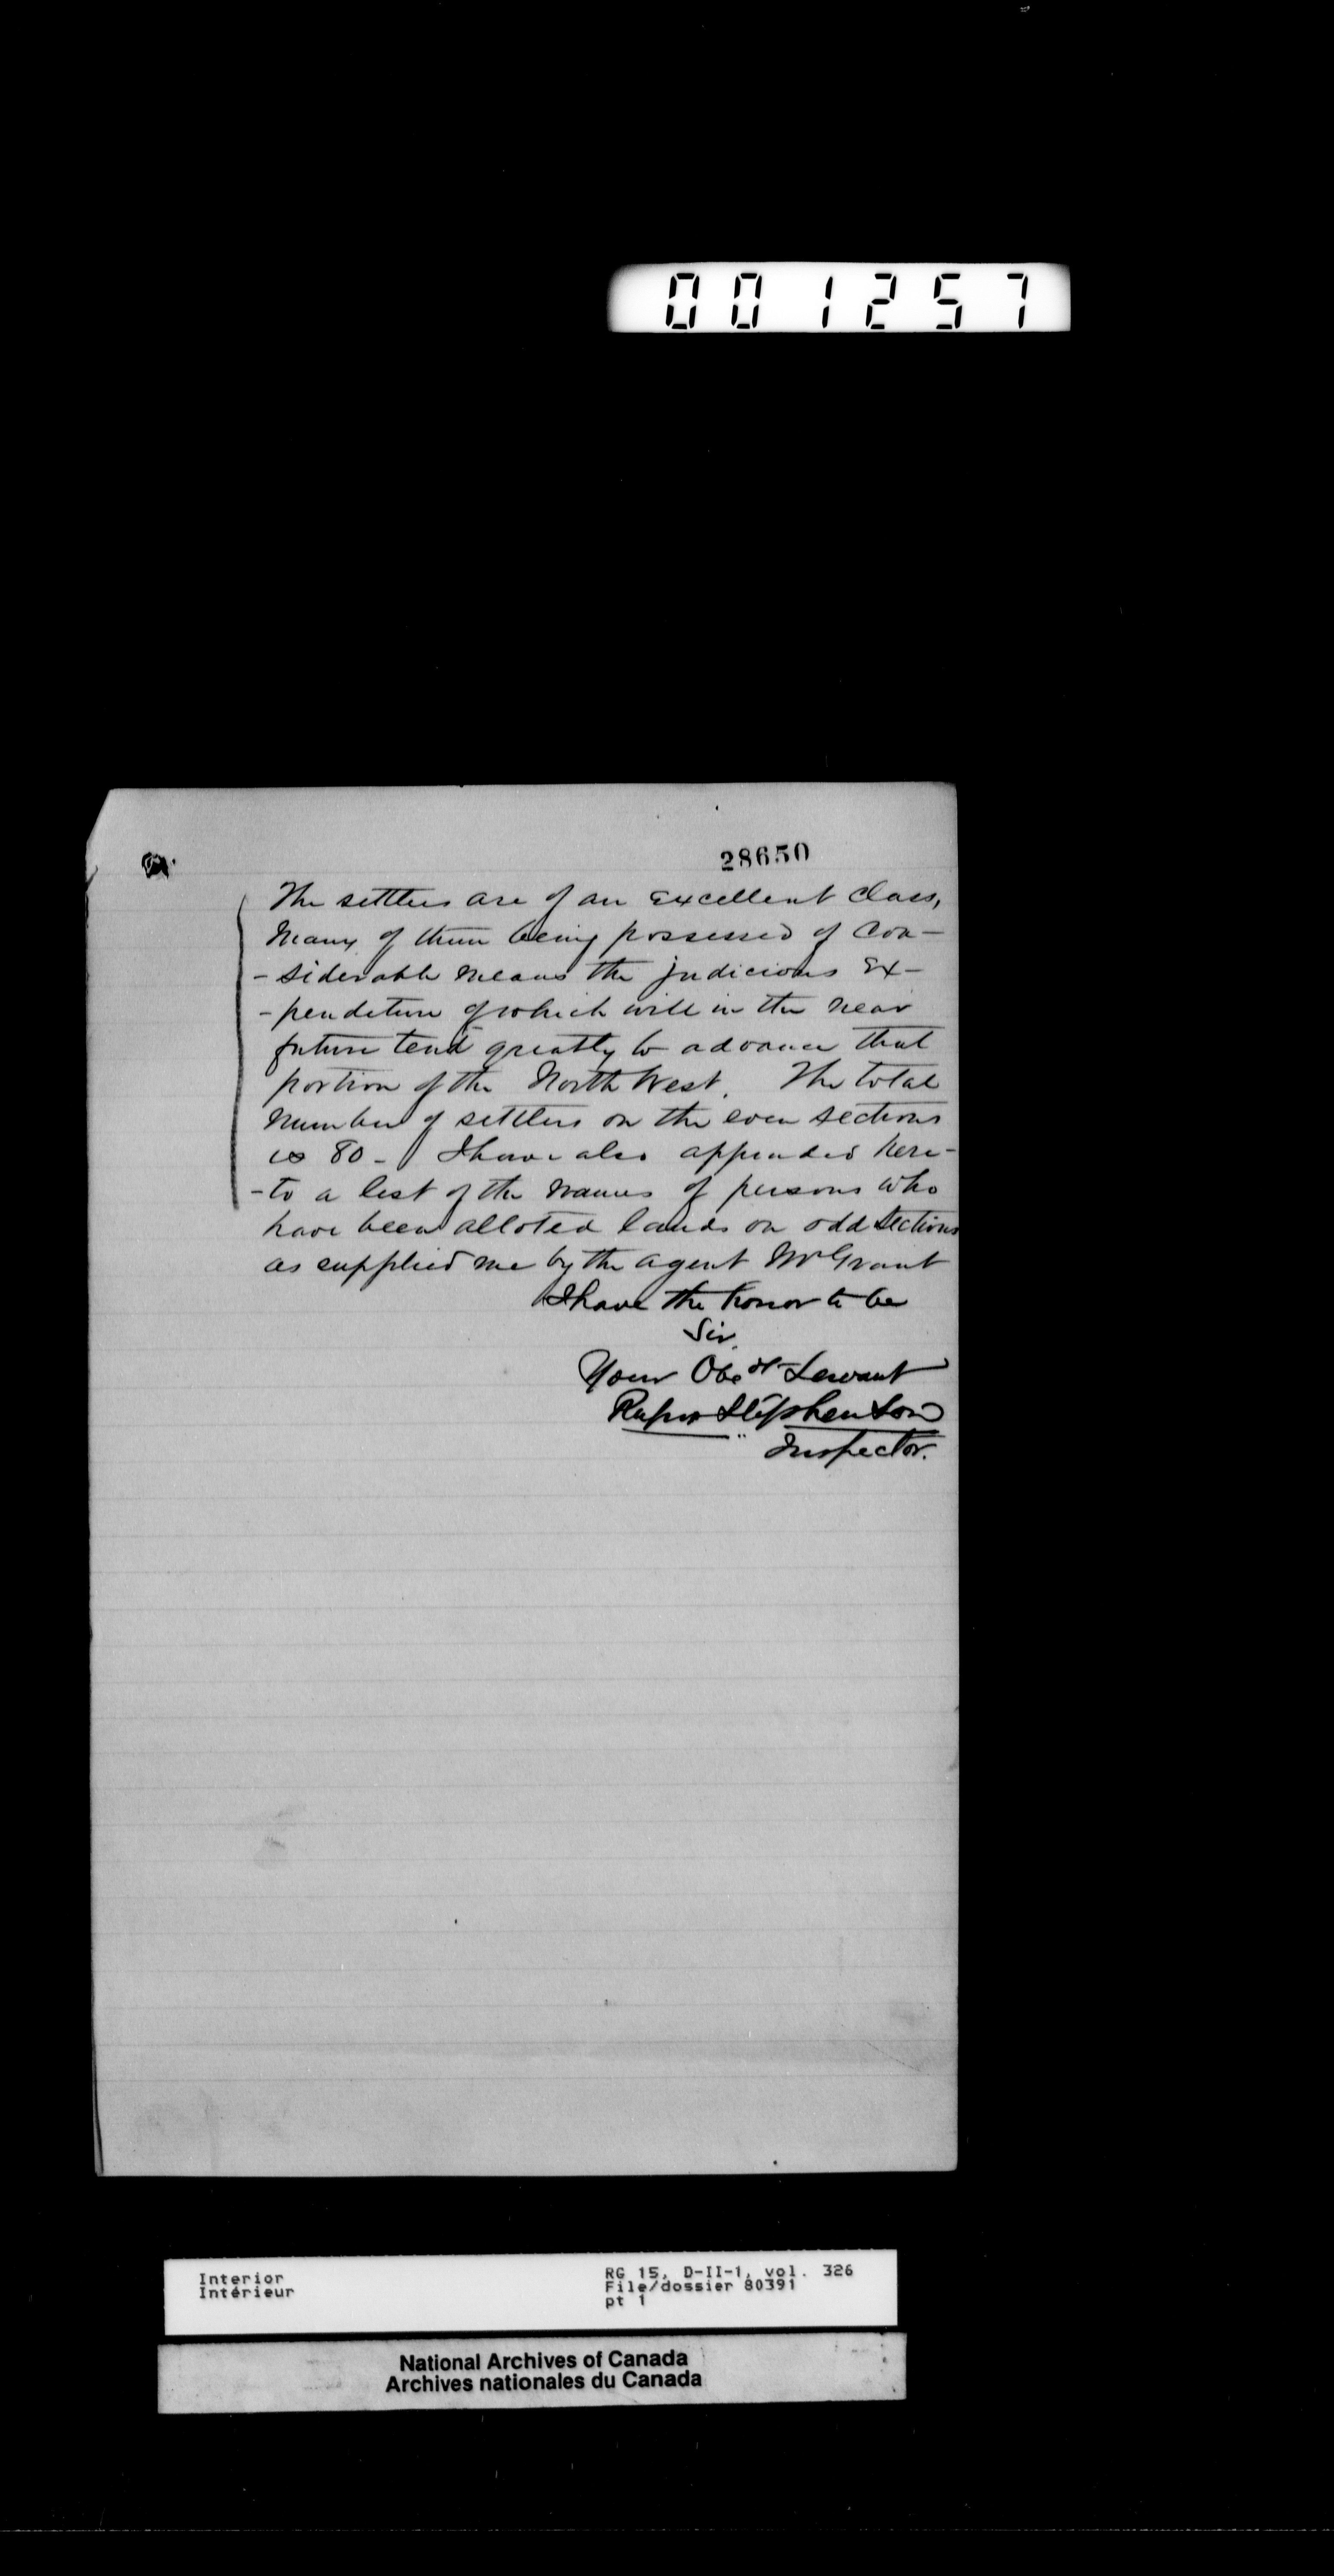 001257
28650
The settlers are of an Excellent Class,
Many of them being possessed of Con-
-siderable Means the judicious Ex-
-penditure of which will in the near
future tend greatly to advance that
portion of the North West. The total
number of settlers on the even sections
is 80 - I have also appended here-
-to a list of the names of persons who
have been alloted lands on odd sections
as supplied me by the agent Mr Grant
I have the honor to be
Sir,
Your Obedt Servant
Rufus Stephenson
Inspector.
Interior
Intérieur
RG 15, D-II-1, vol. 326
File/dossier 80391
pt 1
National Archives of Canada
Archives nationales du Canada